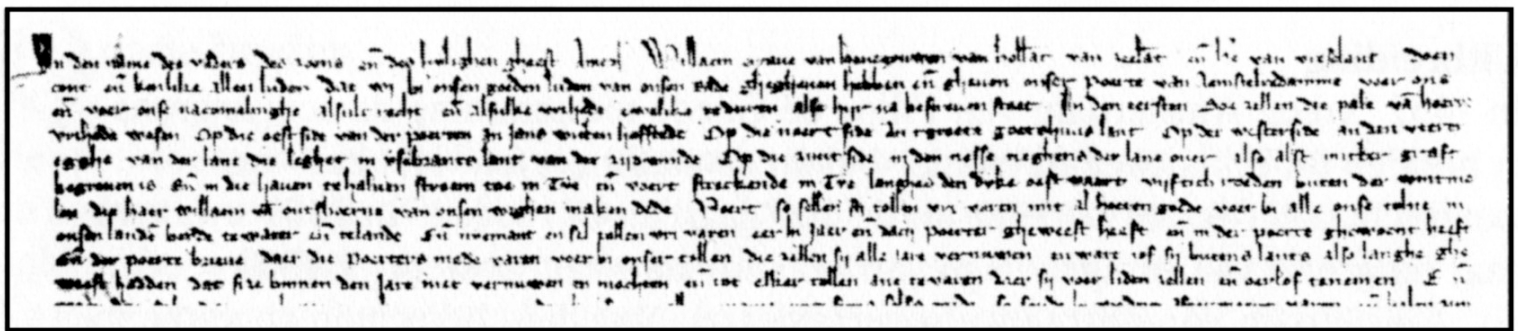 In den name des vaders des zoens eñ des heilighen gheest Amen Willaem graue van henegouwen van hollāt van zeelāt eñ h̄e van vrieslant doen
cont eñ kenlike allen luden dat wi bi onsen goeden luden van onsen rade ghegheuen hebben eñ gheuen onser poerte van Aemstelredamme voer ons
eñ voer onse nacomelinghe alsulc recht eñ alsulke vrihede ewelike te duren alse hijr na bescreuen staet In den eersten soe zellen die pale vā hoerre
vrihede wesen Op die oestside van der poerten In Jans hofstede Op die noert side an tgroete goetshuus lant Op der westerside an den veerti
egghe van der lane die leghet in ysebrants lant van der zijdwinde Op die zuut side in den nesse neghens der lane ouer also alst mitter graft
begreuen is Eñ in die hauen te haluen stroem toe in Tye eñ voert streckende in Tye langhes den dyke oestwaert vijftich roeden buten der
die haer willaem vā outshoerne van onsen weghen maken dede Voert so sellen si tollen vri varen mit al hoeren goede voer bi alle onse tolne in
onsen landē beide te water eñ te lande Eñ niemant en sel tollen vri varen eer hi Jaer eñ dach poerter gheweest heeft eñ in der poerte ghewoent heeft
Eñ der poerte brieue daer die poerters mede varen voer bi onser tollen die zellen sij alle iare vernuwen en waer iof sij butens lants also langhe ghe
weest hadden dat size binnen den Jare niet vernuwen en mochten eñ tot elker tollen ane te varen daer sij voer liden zellen eñ oerlof tanemen Eñ